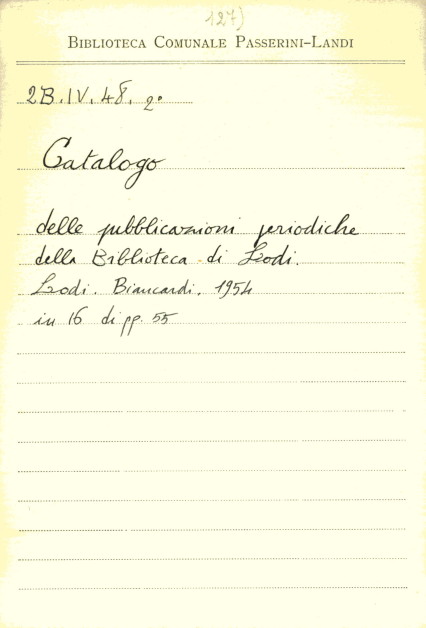 127)
BIBLIOTECA COMUNALE PASSERINI-LANDI
2B.IV.48. 2º
Catalogo
delle pubblicazioni periodiche
della Biblioteca di Lodi.
Lodi. Biancardi. 1954
in 16 di pp. 55